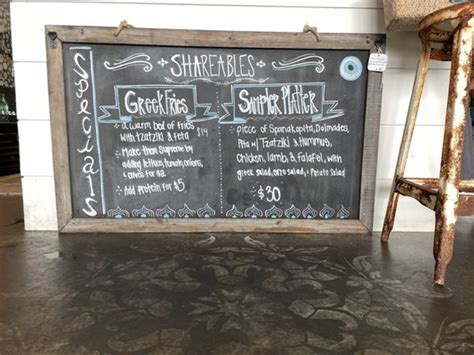 Specials
SHAREABLES
Greek Fries
a warm bed of fries
with tzatziki & feta $14
Make them supreme by
adding lettuce, tomato, onions,
& olives for $2
Add protein for $5
Sampler Platter
piece of Spanakopita, Dolmades,
Pita w/ Tzatziki & Hummus,
Chicken, lamb, & falafel, with
greek salad, orzo salad, & Potato Salad
$30